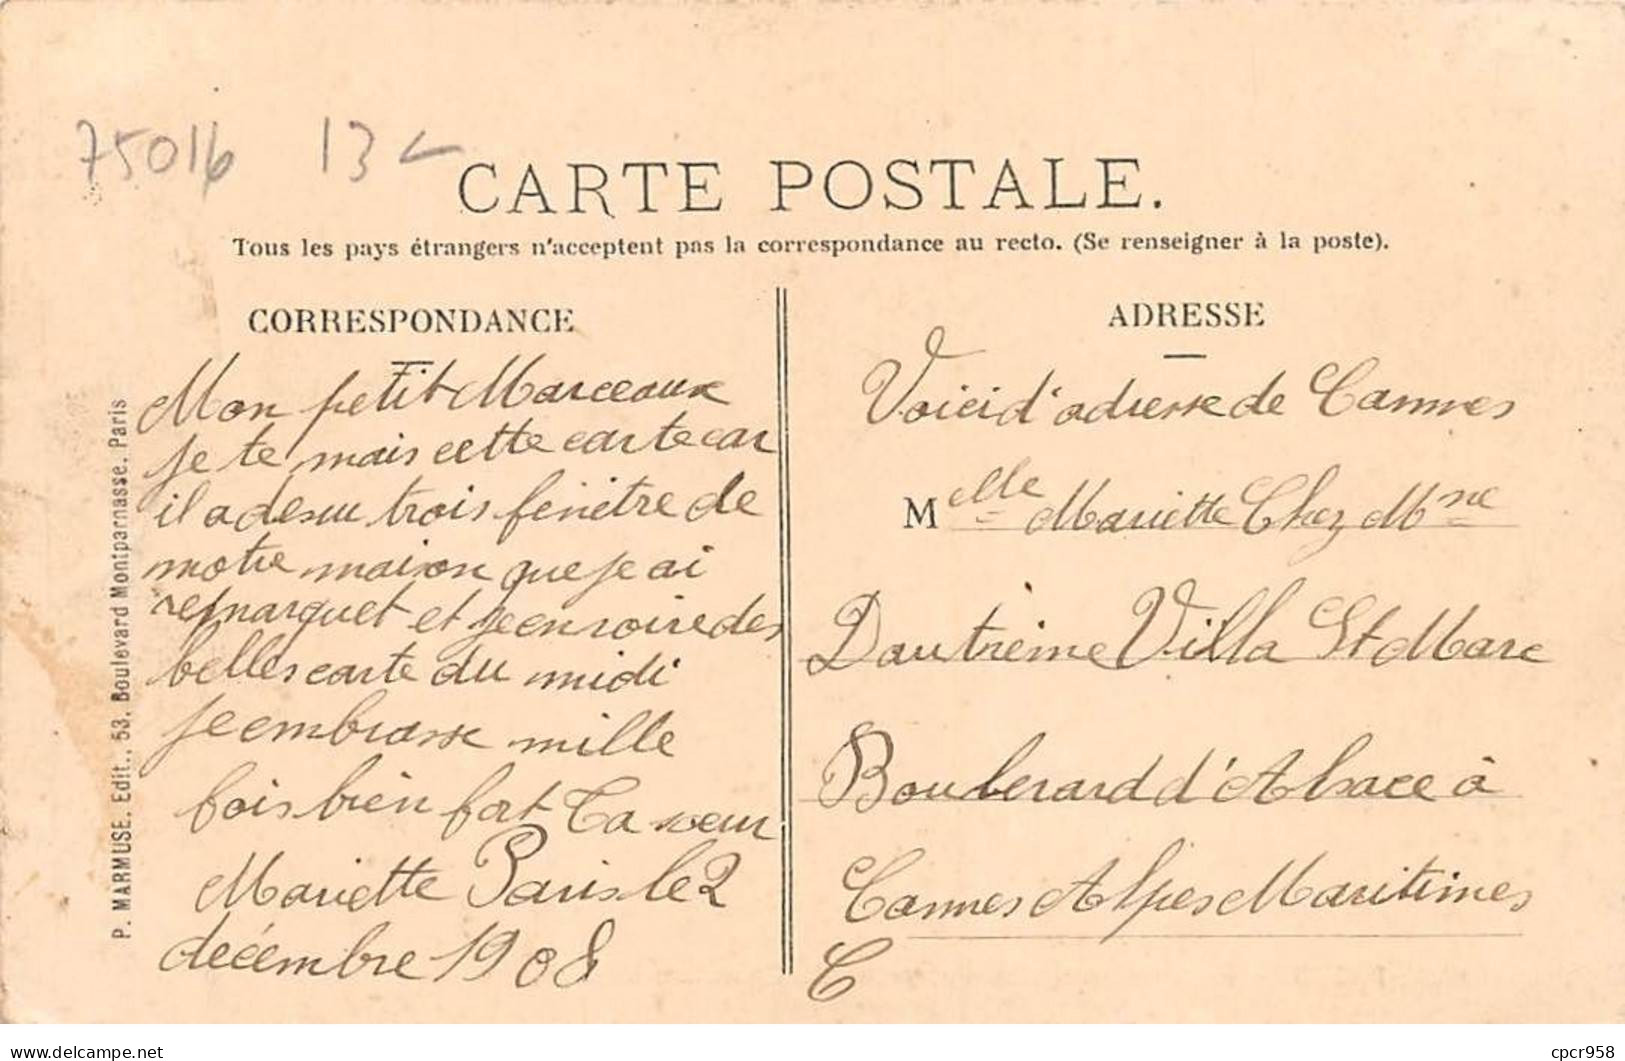 75016 13
CARTE POSTALE.
Tous les pays étrangers n'acceptent pas la correspondance au recto. (Se renseigner à la poste).
CORRESPONDANCE
Mon petit Marceaux
je te mais cette carte car
il a desur trois fénètre de
notre maison que je ai
remarquet et je en roire des
belles carte du midi
je embrasse mille
fois bien fort Ta sœur
Mariette Paris le 2
décembre 1908
ADRESSE
Voici d'adresse de Cannes
Melle Mariette Chez Mme
Dautrème Villa St Marc
Boulevard d'Alsace à
Cannes Alpes Maritimes
C
P. MARMUSE. Edit., 53, Boulevard Montparnasse. Paris
delcampe.net
cpcr958